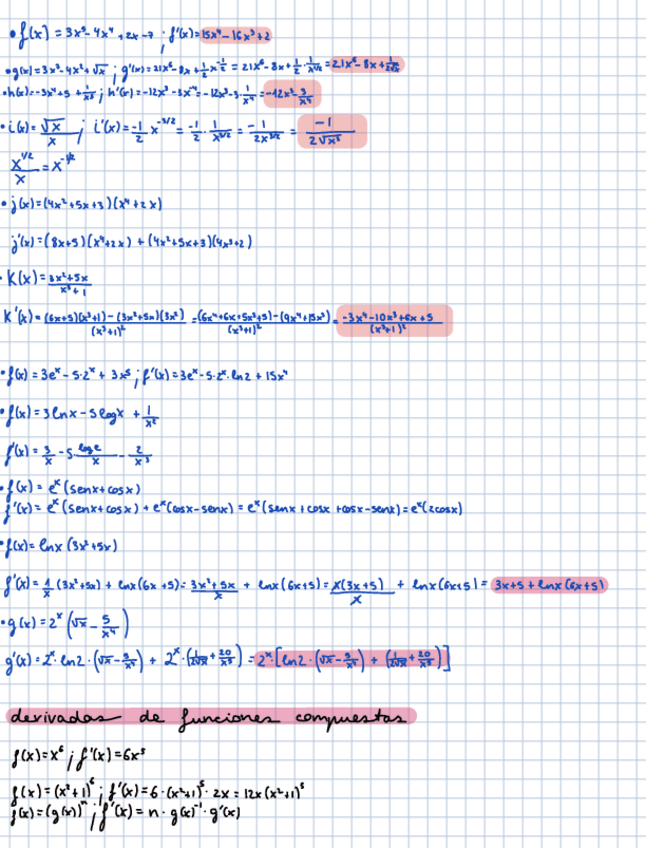 • f(x) = 3x⁵ - 4x⁴ + 2x - 7 ; f'(x) = 15x⁴ - 16x³ + 2
• g(x) = 3x⁷ - 4x² + √x ; g'(x) = 21x⁶ - 8x + 1/2 x^(-1/2) = 21x⁶ - 8x + 1/2 · 1/x^(1/2) = 21x⁶ - 8x + 1/(2√x)
• h(x) = -3x⁴ + 5 + 1/x³ ; h'(x) = -12x³ - 3x⁻⁴ = -12x³ - 3 · 1/x⁴ = -12x³ - 3/x⁴
• i(x) = √x/x ; i'(x) = -1/2 x^(-3/2) = -1/2 · 1/x^(3/2) = -1/(2x^(3/2)) = -1/(2√x³)
x^(1/2)/x = x^(-1/2)
• j(x) = (4x² + 5x + 3)(x⁴ + 2x)
j'(x) = (8x + 5)(x⁴ + 2x) + (4x² + 5x + 3)(4x³ + 2)
• K(x) = (3x² + 5x)/(x³ + 1)
K'(x) = ((6x + 5)(x³ + 1) - (3x² + 5x)(3x²))/(x³ + 1)² = ((6x⁴ + 6x + 5x³ + 5) - (9x⁴ + 15x³))/(x³ + 1)² = (-3x⁴ - 10x³ + 6x + 5)/(x³ + 1)²
• f(x) = 3eˣ - 5·2ˣ + 3x⁵ ; f'(x) = 3eˣ - 5·2ˣ·ln2 + 15x⁴
• f(x) = 3lnx - 5logx + 1/x²
f'(x) = 3/x - 5·log e/x - 2/x³
• f(x) = eˣ(senx + cosx)
f'(x) = eˣ(senx + cosx) + eˣ(cosx - senx) = eˣ(senx + cosx + cosx - senx) = eˣ(2cosx)
• f(x) = lnx (3x² + 5x)
f'(x) = 1/x (3x² + 5x) + lnx(6x + 5) = (3x² + 5x)/x + lnx(6x + 5) = x(3x + 5)/x + lnx(6x + 5) = 3x + 5 + lnx(6x + 5)
• g(x) = 2ˣ(√x - 5/x⁴)
g'(x) = 2ˣ·ln2·(√x - 5/x⁴) + 2ˣ·(1/(2√x) + 20/x⁵) = 2ˣ·[ln2·(√x - 5/x⁴) + (1/(2√x) + 20/x⁵)]
derivadas de funciones compuestas
f(x) = x⁶ ; f'(x) = 6x⁵
f(x) = (x² + 1)⁶ ; f'(x) = 6·(x² + 1)⁵·2x = 12x(x² + 1)⁵
f(x) = (g(x))ⁿ ; f'(x) = n·g(x)⁻¹·g'(x)